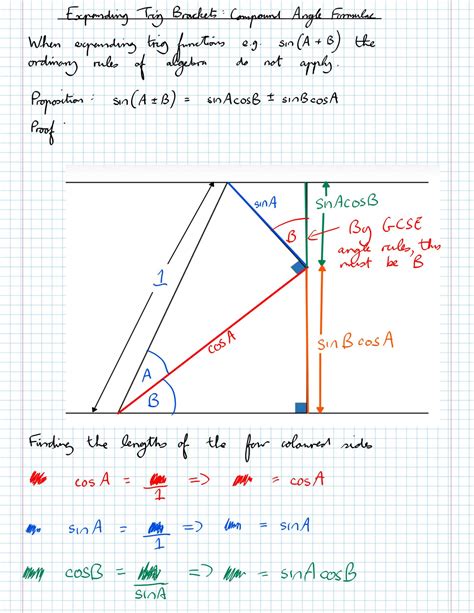 Expanding Trig Brackets: Compound Angle Formulae
When expanding trig functions e.g. sin(A + B) the
ordinary rules of algebra do not apply.
Proposition: sin(A ± B) = sinAcosB ± sinBcosA
Proof:
sinA
sinAcosB
B
By GCSE
angle rules, this
must be B
1
cosA
sinBcosA
A
B
Finding the lengths of the four coloured sides
cosA = /1 => = cosA
sinA = /1 => = sinA
cosB = /sinA => = sinAcosB